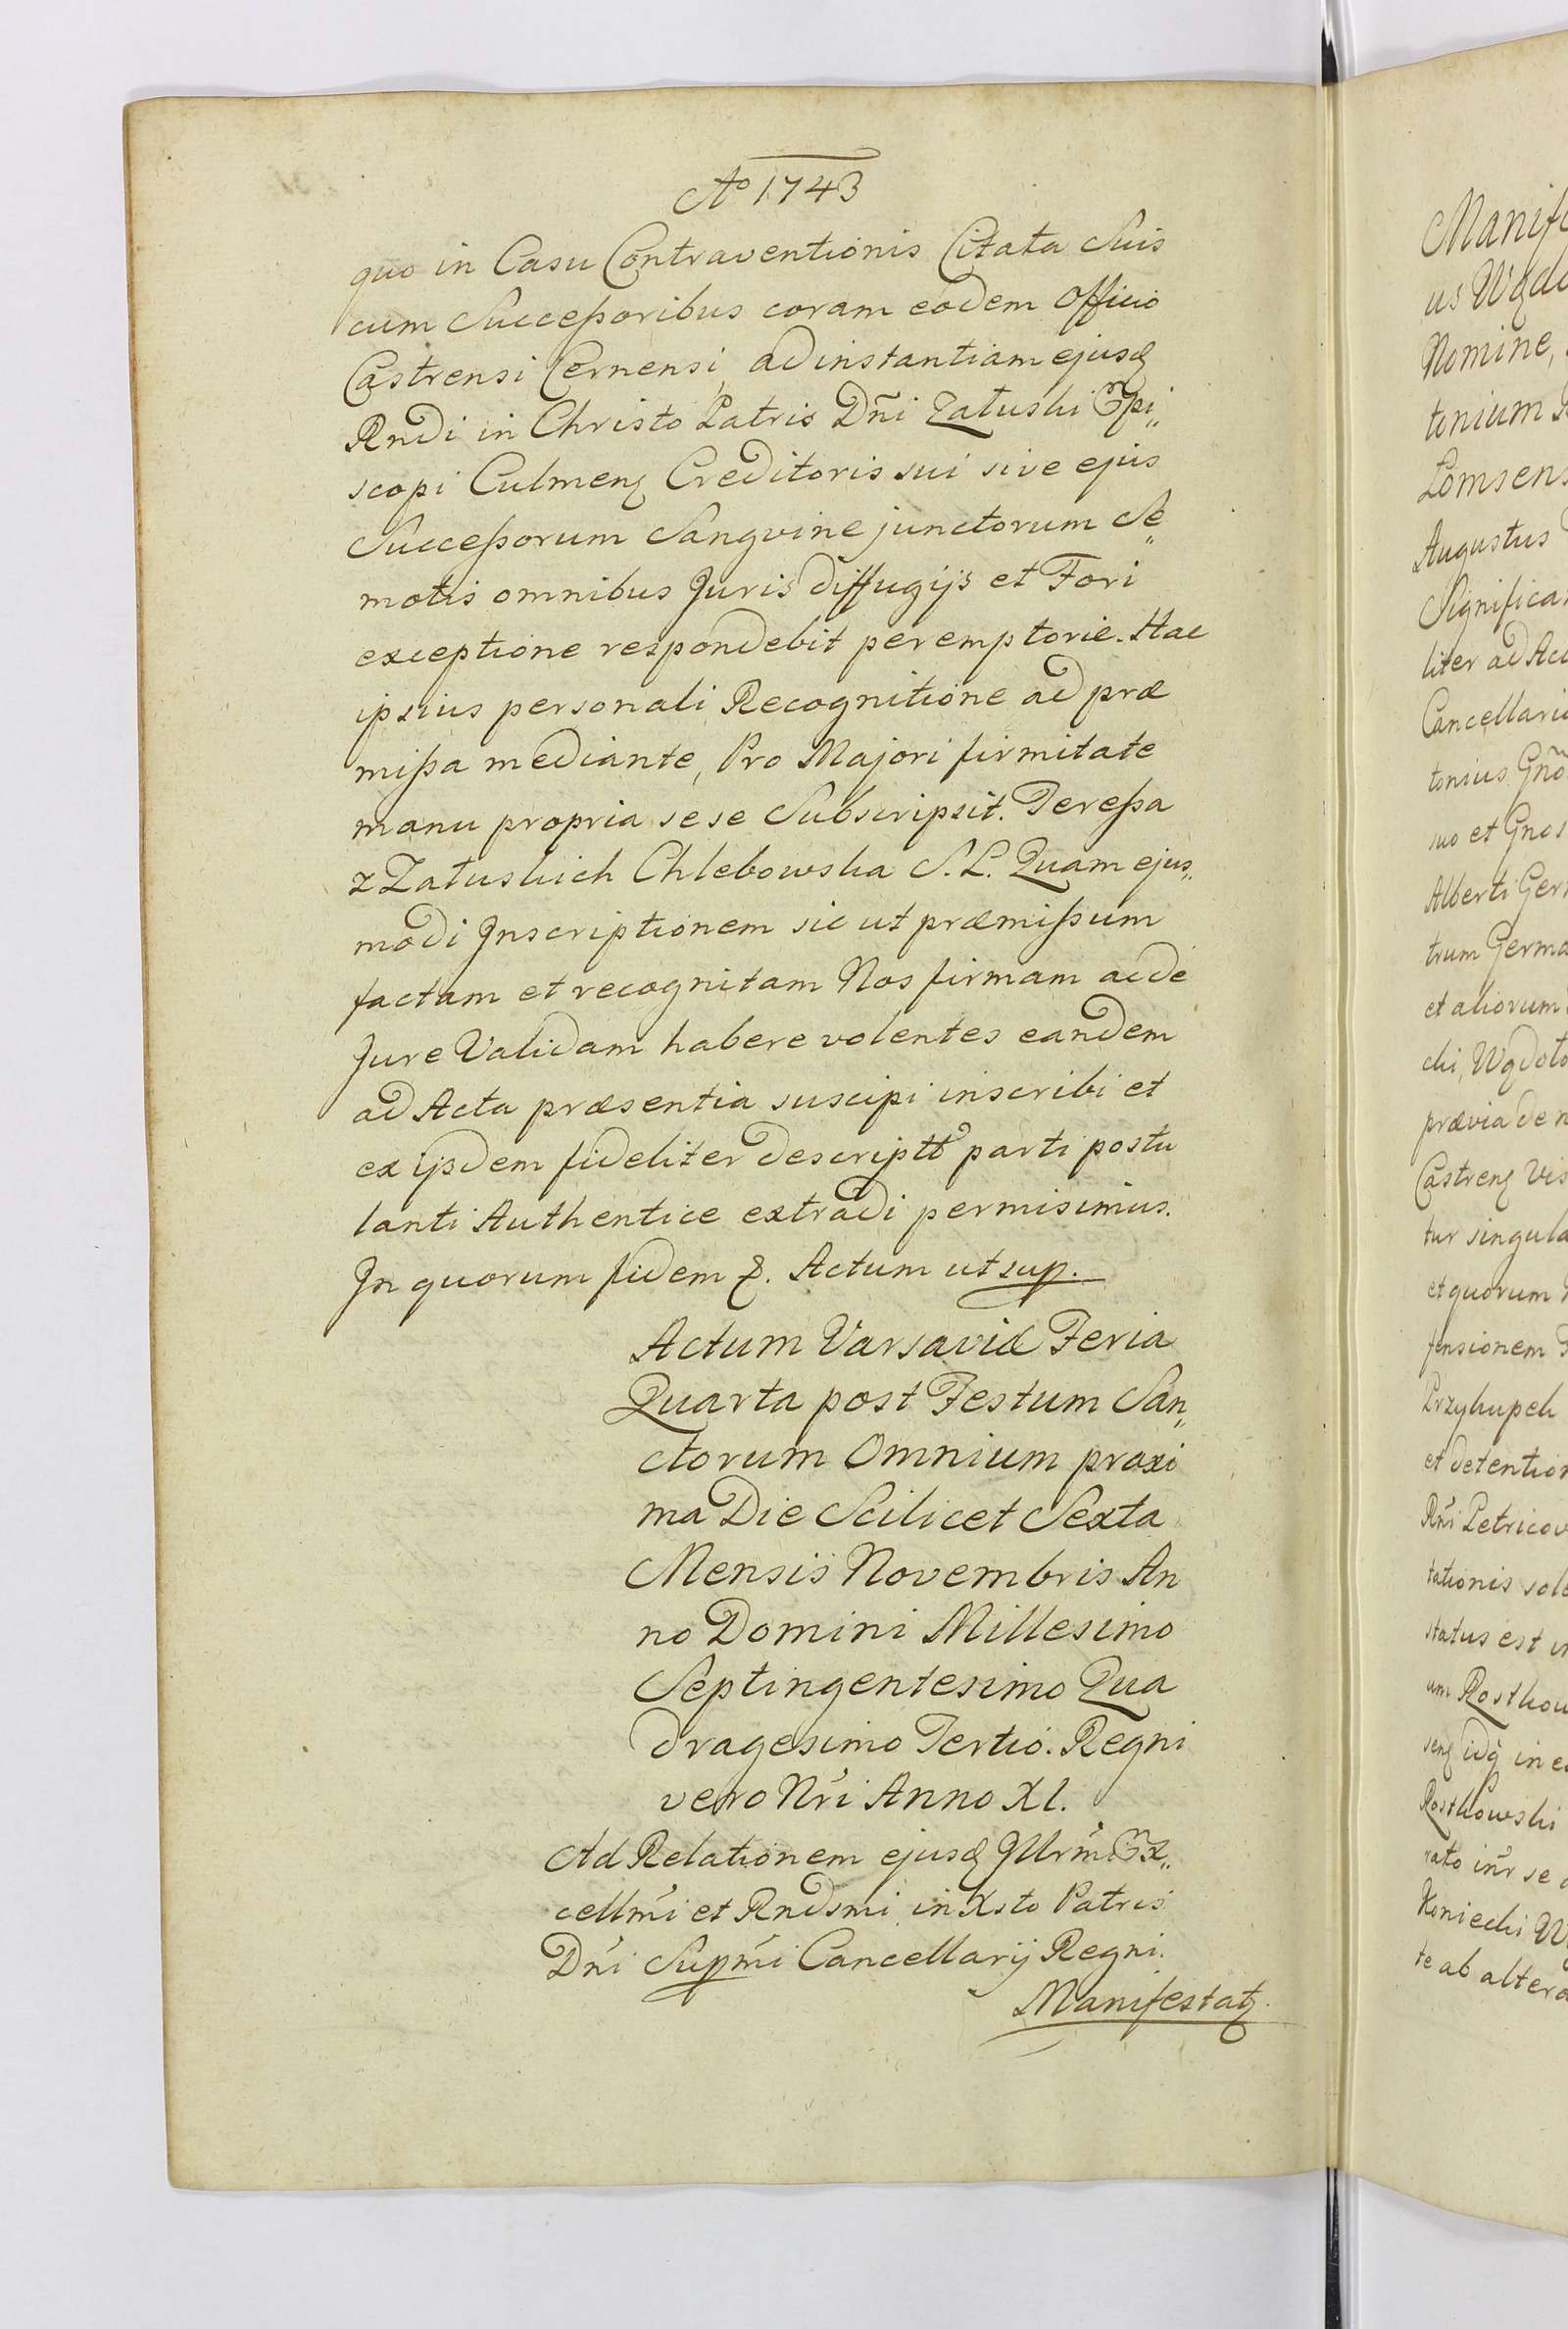 Ao 1743
quo in Casu Contraventionis Citata Suis
cum Successoribus coram eodem Officio
Castrensi Cernensi, ad instantiam ejusd
Rndi in Christo Patris Dñi Załuski Epi„
scopi Culmens Creditoris sui sive ejus
Successorum Sangvine junctorum Se„
motis omnibus Juris diffugijs et Fori
exceptione respondebit peremptorie. Hac
ipsius personali Recognitione ad præ
missa mediante, Pro Majori firmitate
manu propria sese Subscripsit. Teressa
z Załuskich Chlebowska S. L. Quam ejus„
modi Inscriptionem sic ut præmissum
factam et recognitam Nos firmam ac de
Jure Validam habere volentes eandem
ad Acta præsentia suscipi inscribi et
ex ijsdem fideliter descriptt parti postu
lanti Authentice extradi permisimus.
In quorum fidem &. Actum ut sup.
Actum Varsaviæ Feria
Quarta post Festum San„
ctorum Omnium proxi
ma Die Scilicet Sexta
Mensis Novembris An
no Domini Millesimo
Septingentesimo Qua
dragesimo Tertio. Regni
vero Nri Anno XI.
Ad Relationem ejusd Illrmi Ex„
cellmi et Rndsmi in Xsto Patris
Dni Supmi Cancellarij Regni.
Manifestatz
Manife
us Wgdo
Nomine,
tonium
Lomsens
Augustus
Significa
liter ad Ac
Cancellari
tonius Gño
suo et Gnos
Alberti Ger
trum Germa
et aliorum
cki, Wgdoto
prævia de n
Castrens Vis
tur singula
et quorum
fensionem
Przykupek
et detention
Rni Petricov
tationis sole
status est in
um Rostkow
sens idq in e
Rostkowski
rato inr se
Koniecki W
te ab altera